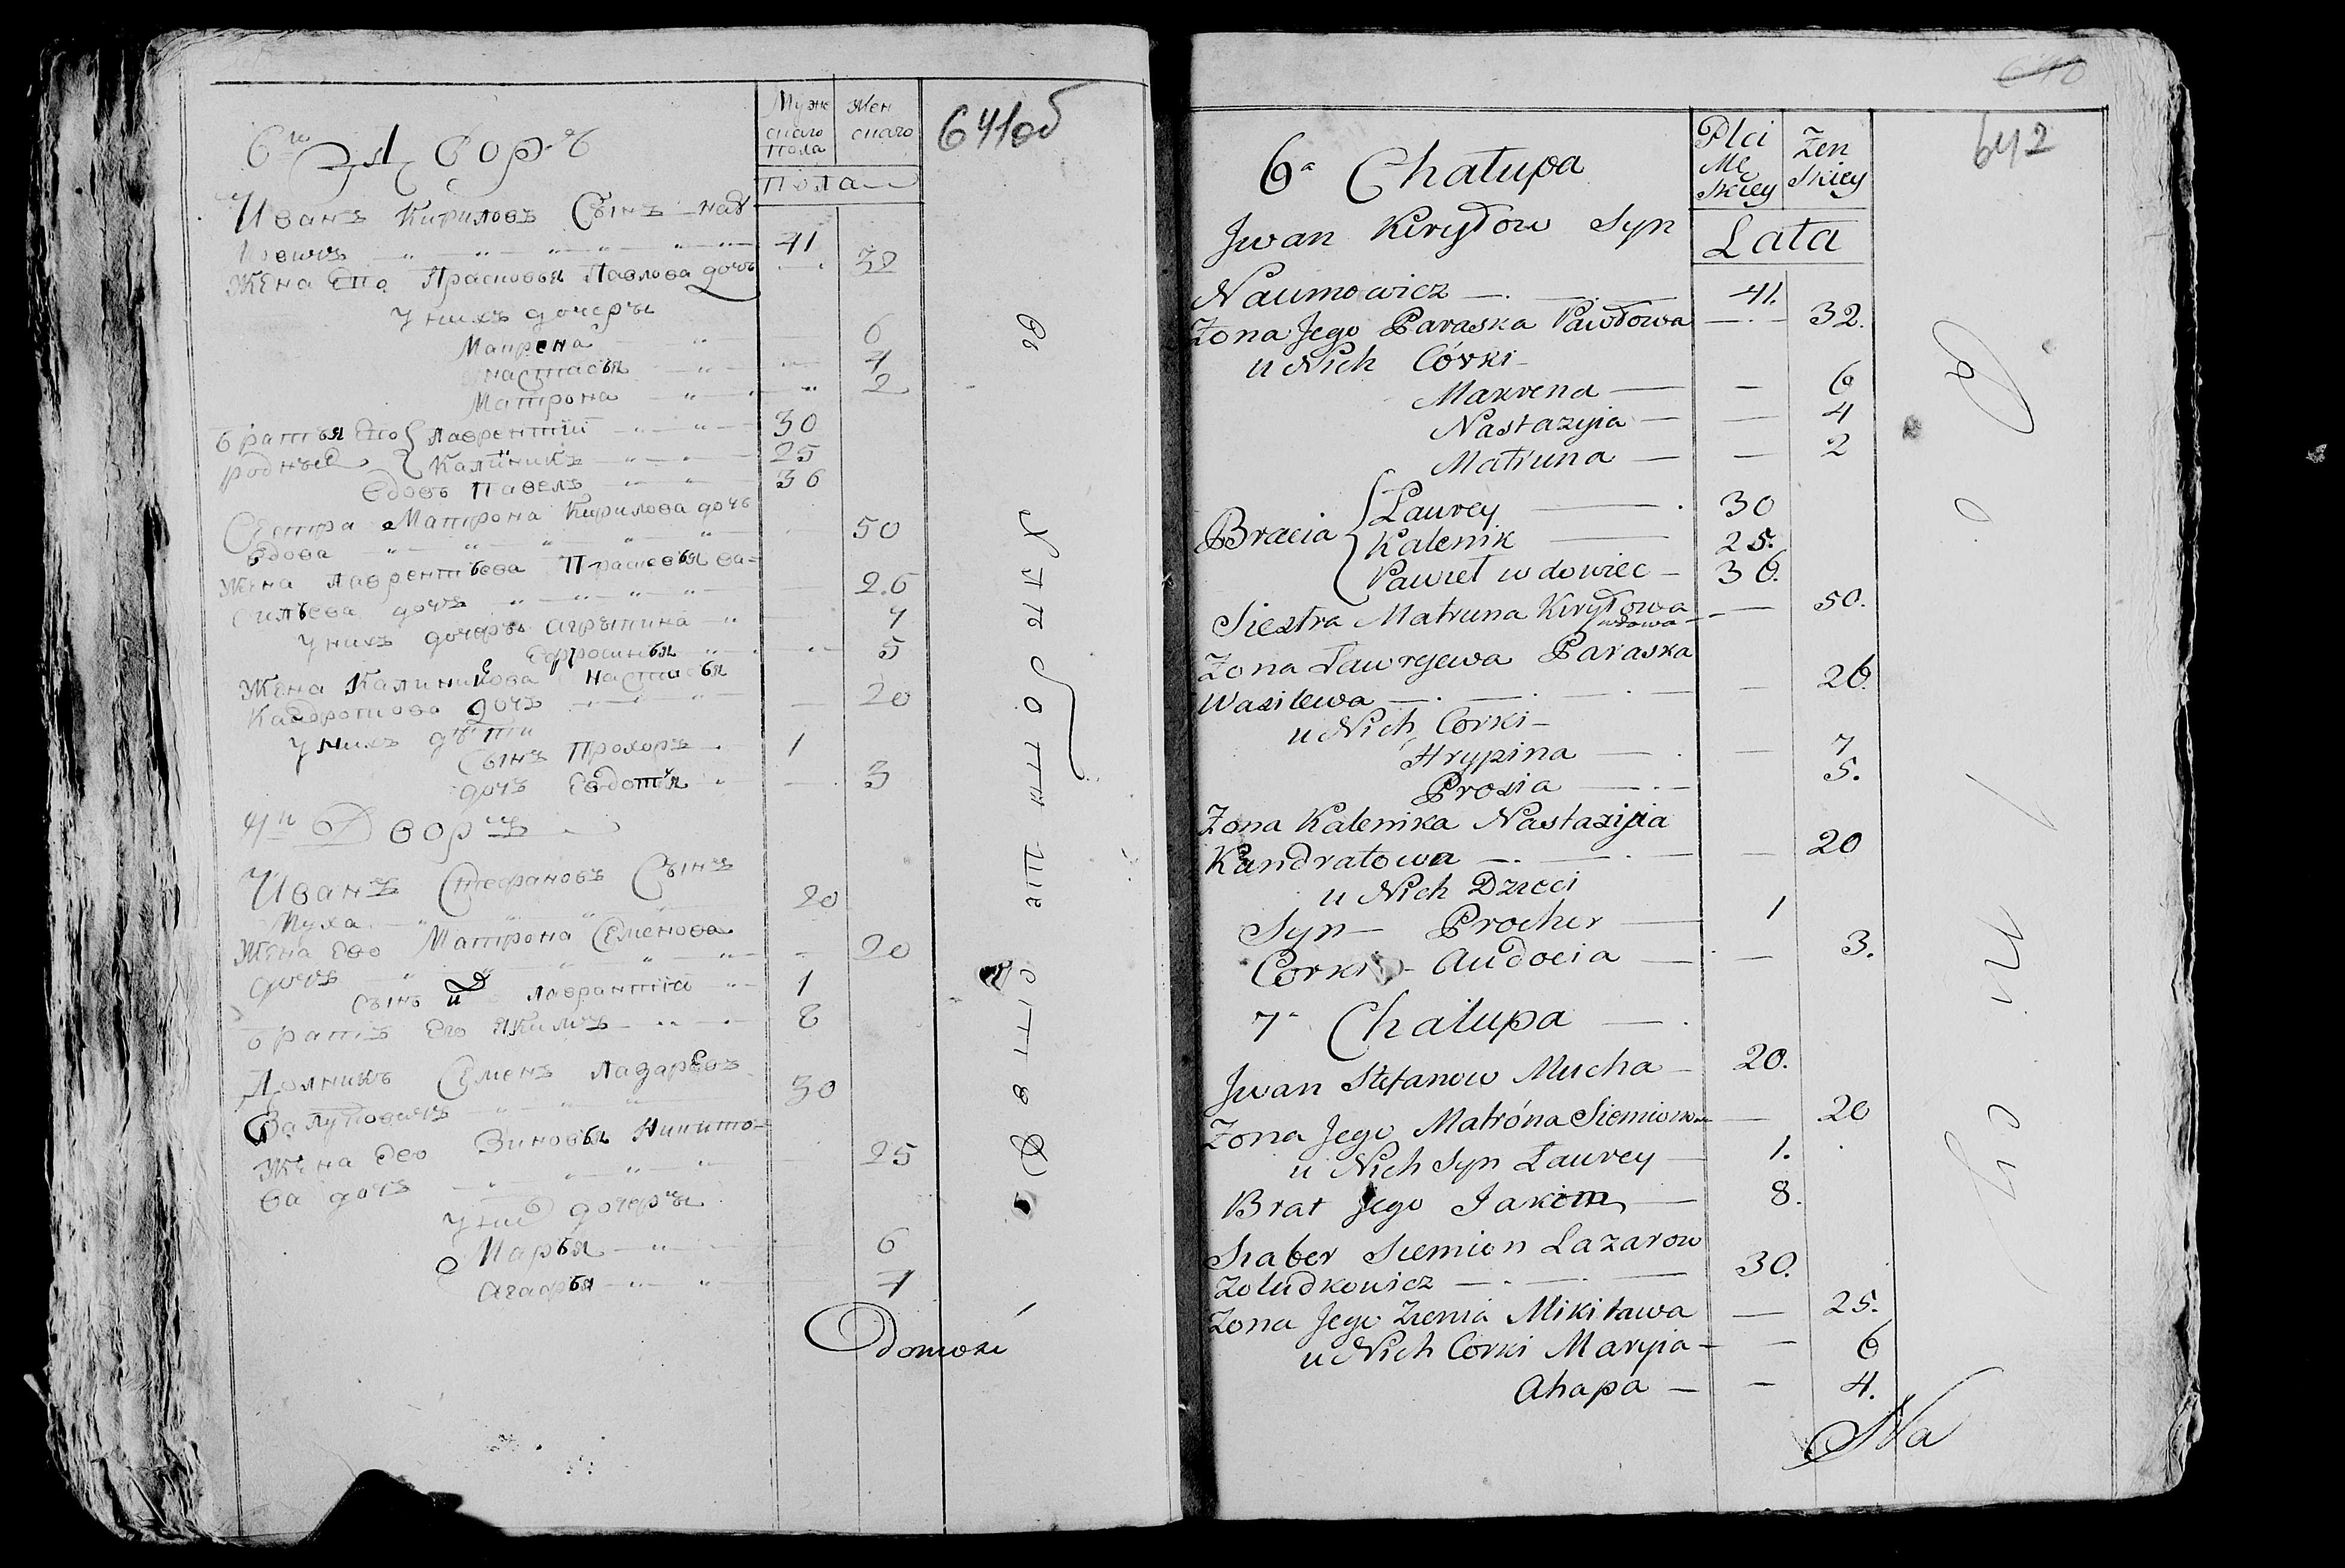 Муж
скаго
пола
Жен
скаго
пола
641об
6го Дворъ
Иванъ Кириловъ Сынъ
41
Жена Его Прасковья Павлова дочь 32
У нихъ дочеры
Маирена 6
настасья 4
Матрона 2
братья Его Лаврентiй 30
родные Калиникъ 25
вдовъ Павелъ 36
Сестра Матрона Кирилова дочь
вдова 50
Жена Лаврентьева Прасковья ва=
сильева дочь 26
У нихъ дочеры агрыпина 7
Ефросинья 5
Жена Калиникова настасья
Кандратова дочь 20
У нихъ дѣти
Сынъ Прохоръ 1
дочь Евдотья 3
Дворъ
Иванъ Стефановъ Сынъ
Муха 20
Жена Ево Матрона Семенова
дочь 20
сынъ Лаврантiй 1
братъ Его Якимъ 8
Семенъ Лазаревъ
30
Жена Ево Зиновья Никито=
ва дочь 25
У них дочеры
Марья 6
Агафья 4
642
6a Chałupa
Płci
Mę
skiey
Zen
skiey
Lata
Jwan Kiryłow Syn
Naumowicz 41.
Zona Jego Paraska Pawłowa 32.
u Nich Córki
Makrena 6
Nastazyia 4
Matruna 2
Bracia Laurey 30
Kalenik 25.
Paweł wdowiec 36.
Siestra Matruna Kiryłowa wdowa 50.
Zona Ławrejewa Paraska
Wasilewa 26.
u Nich Corki
Hrypina 7
Prosia 5.
Zona Kalenika Nastazija
Kandratowa 20
u Nich Dzieci
Syn Procher 1
Corki Audocia 3.
7a Chałupa
Jwan Stefanow Mucha 20.
Zona Jego Matróna Siemionowa 20
u Nich Syn Laurey 1.
Brat Jego Jakim 8.
Siaber Siemion Lazarow
Zoludkowicz 30.
Zona Jego Zienia Mikitawa 25.
u Nich Corki Maryia 6
Ahapa 4.
Na